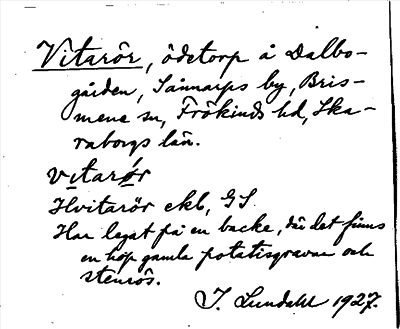 Vitarör, ödetorp å Dalbo-
gården, Sånnarps by, Bris-
mene sn, Frökinds hd, Ska-
raborgs län.
vitarør
Hvitarör ekb, GS.
Har legat på en backe, där det finns
en hop gamla potatisgravar och
stenrös.
I. Lundahl 1927.